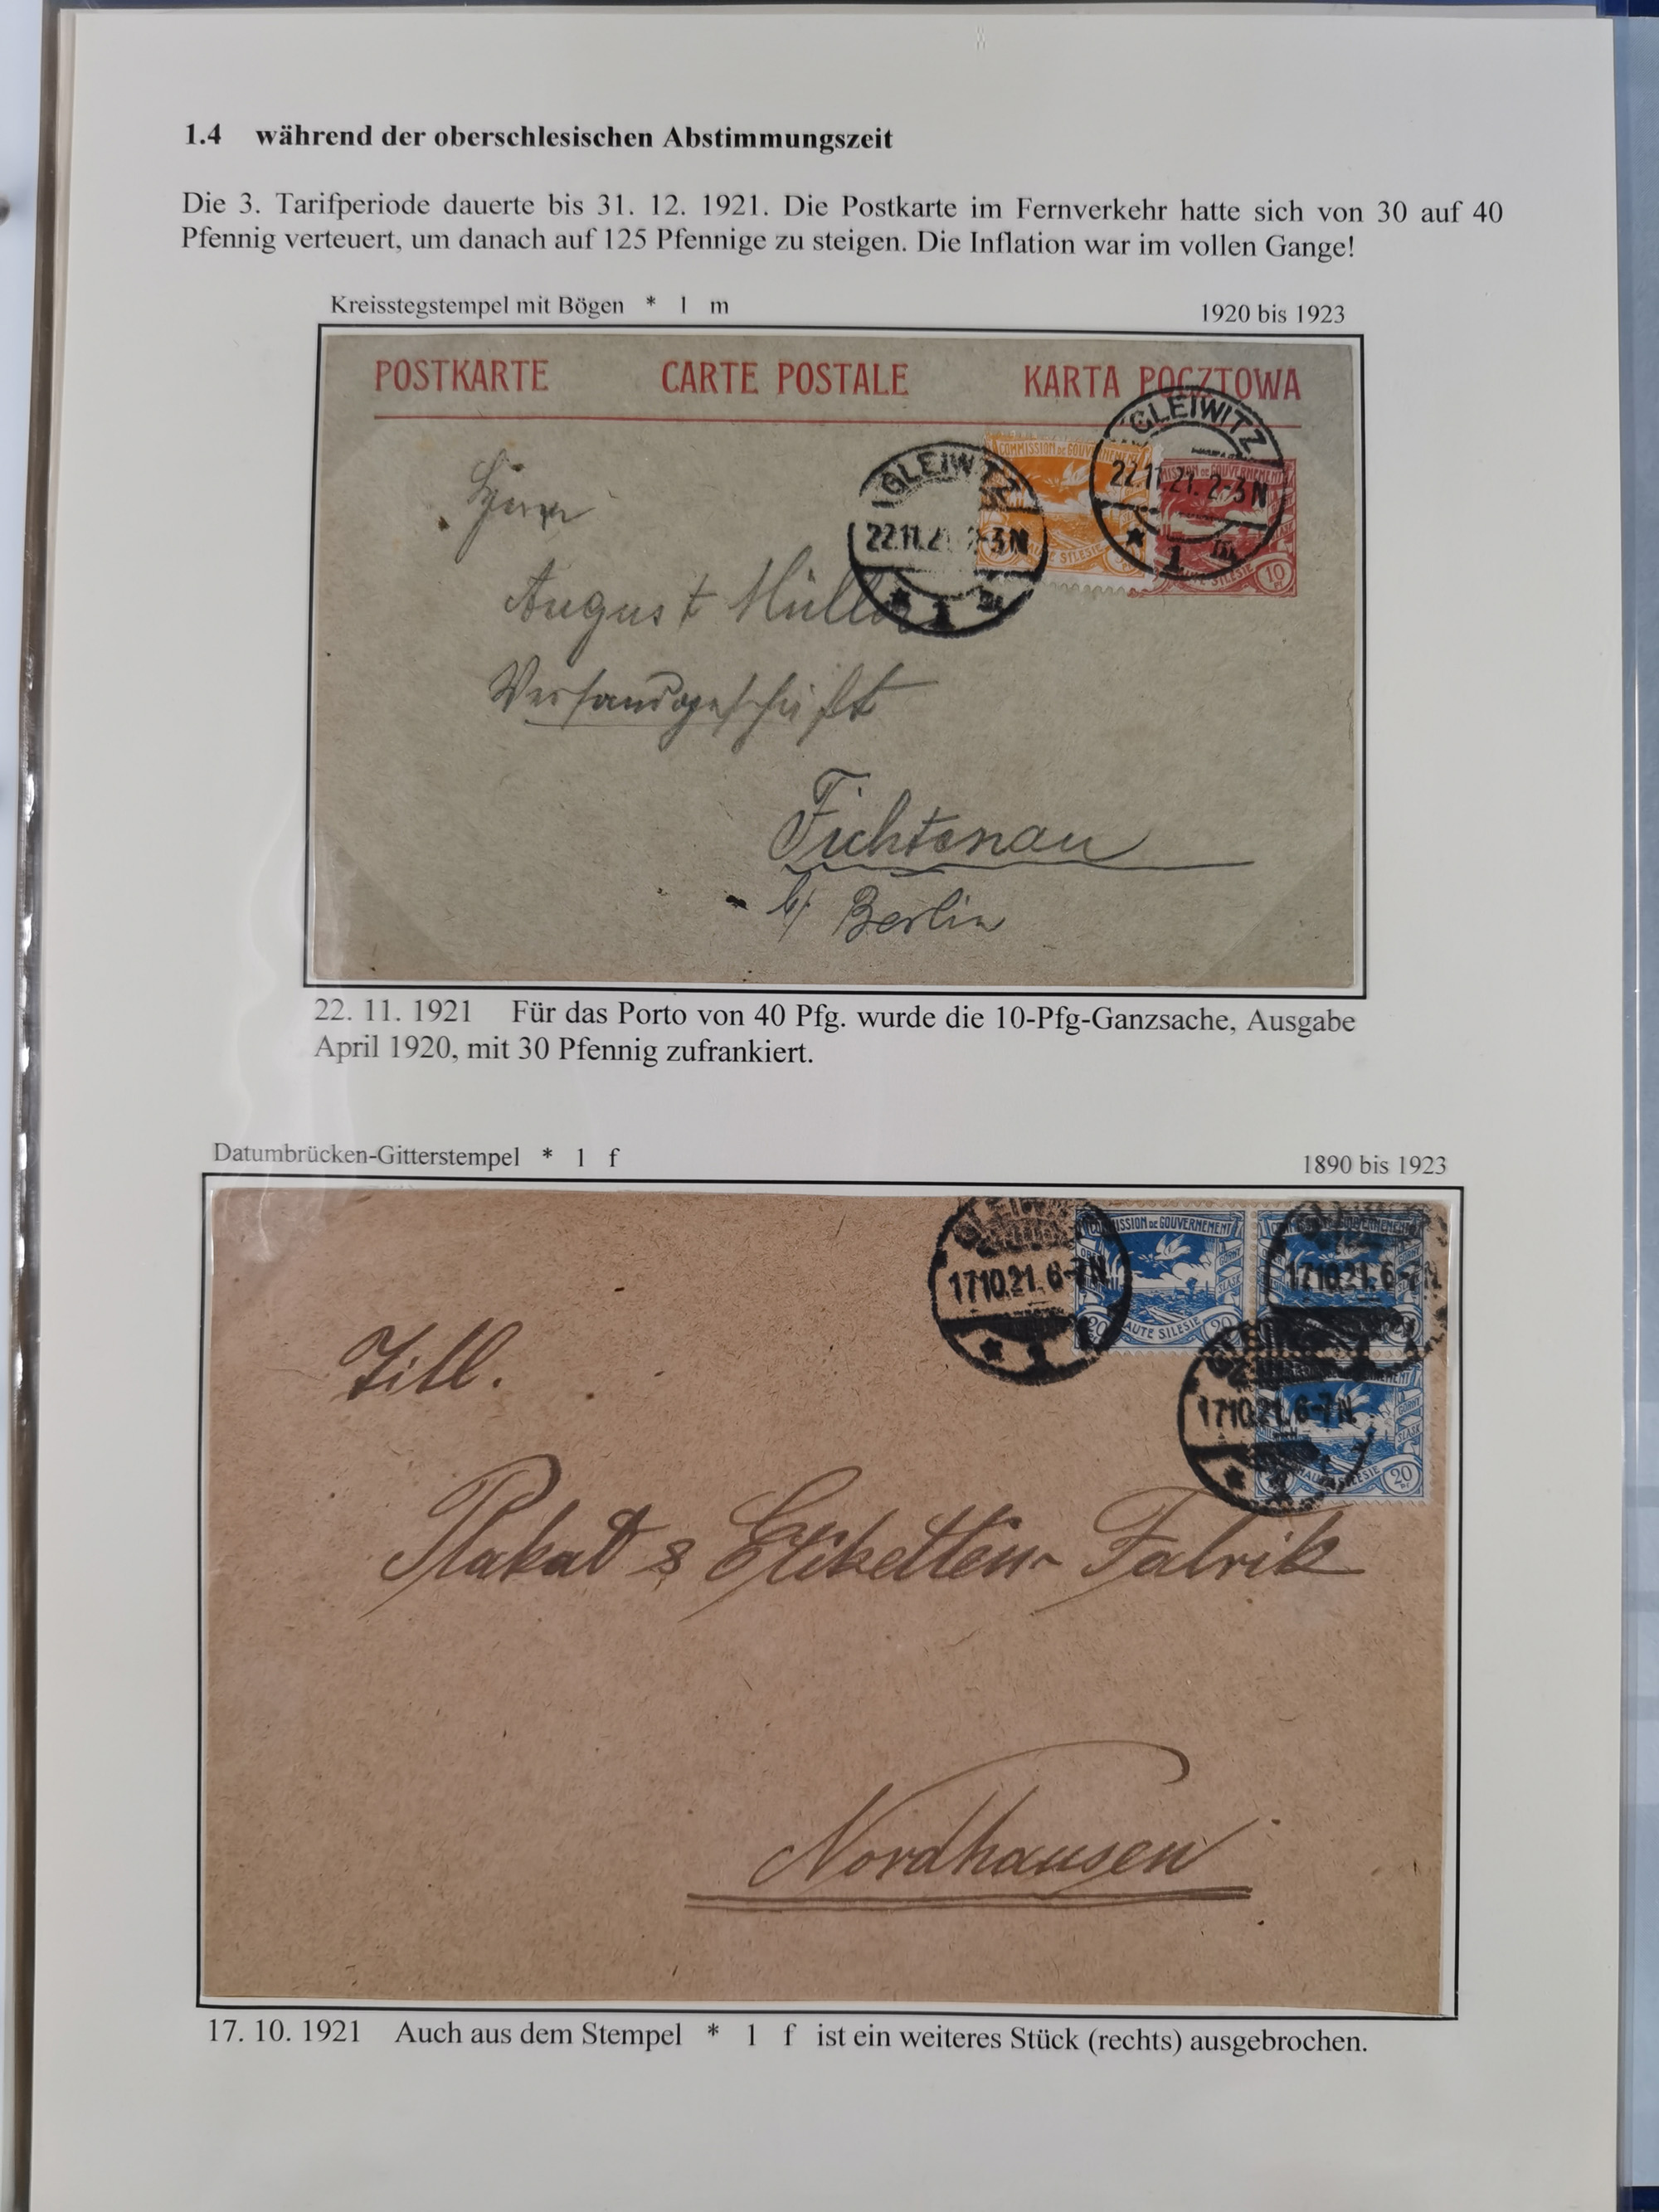 1.4 während der oberschlesischen Abstimmungszeit
Die 3. Tarifperiode dauerte bis 31. 12. 1921. Die Postkarte im Fernverkehr hatte sich von 30 auf 40
Pfennig verteuert, um danach auf 125 Pfennige zu steigen. Die Inflation war im vollen Gange!
Kreisstegstempel mit Bögen * 1 m 1920 bis 1923
POSTKARTE CARTE POSTALE KARTA POCZTOWA
GLEIWITZ
22.11.21. 2-3N
* 1 m
GLEIWITZ
22.11.21 2-3N
* 1 m
COMMISSION DE GOUVERNEMENT
MISSION DE GOUVERNEMENT
HAUTE SILESIE
10
PF
Herrn
August Müller
Versandgeschäft
Fichtenau
b/ Berlin
22. 11. 1921 Für das Porto von 40 Pfg. wurde die 10-Pfg-Ganzsache, Ausgabe
April 1920, mit 30 Pfennig zufrankiert.
Datumbrücken-Gitterstempel * 1 f 1890 bis 1923
GLEIWITZ
17.10.21. 6-7N.
* 1
COMMISSION DE GOUVERNEMENT
GORNY
SLASK
20 HAUTE SILESIE 20
17.10.21. 6-7N
17.10.21. 6-7N.
GORNY
SLASK
HAUTE SILESIE
20
PF
Titl.
Plakat & Etiketten-Fabrik
Nordhausen
17. 10. 1921 Auch aus dem Stempel * 1 f ist ein weiteres Stück (rechts) ausgebrochen.